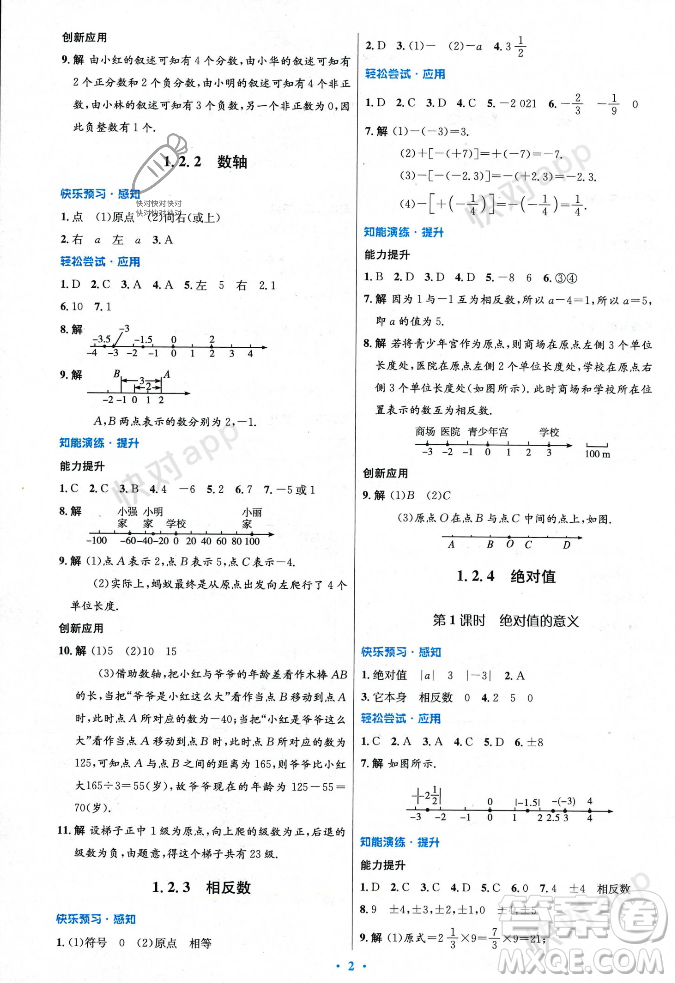 创新应用
9. 解 由小红的叙述可知有4个分数,由小华的叙述可知有
2个正分数和2个负分数,由小明的叙述可知有4个非正
数,由小林的叙述可知有3个负数,另一个非正数为0,因
此负整数有1个.
1.2.2 数轴
快乐预习·感知
1.点 (1)原点 (2)向右(或上)
快对快对快对
快对快对快对
2.右 a 左 a 3.A
轻松尝试·应用
1.D 2.C 3.A 4.C 5.左 5 右 2.1
6.10 7.1
8.解
-3
-3.5 -1.5 0 2
-4 -3 -2 -1 0 1 2 3 4
9.解
B 3 A
2
-2 -1 0 1 2
A,B两点表示的数分别为2,-1.
知能演练·提升
能力提升
1.C 2.C 3.B 4.4 -6 5.5 6.9 7.-5或1
8.解
小强家 小明家 学校 小丽家
-100 -60 -40 -20 0 20 40 60 100
9.解 (1)点A表示2,点B表示5,点C表示-4.
(2)实际上,蚂蚁最终是从原点出发向左爬行了4个
单位长度.
创新应用
10.解 (1)5 (2)10 15
(3)借助数轴,把小红与爷爷的年龄差看作木棒AB
的长,当爷爷是小红这么大时看作当点B移动到点A
时,此时点A所对应的数为-40,当小红是爷爷这么
大时看作当点A移动到点B时,此时点B所对应的数为
125,可知爷爷比小红大165÷3=55(岁),可知爷爷的年龄为125-55=
70(岁).
11.解 设梯子正中1级为原点,向上爬的级数为正,后退的
级数为负,由题意,得这个梯子共有23级.
1.2.3 相反数
快乐预习·感知
1.(1)符号 0 (2)原点 相等
2.D 3.(1)- (2)-a 4.3 1/2
轻松尝试·应用
1.D 2.C 3.D 4.C 5.-2 021 6.-2/3 -1/9 0
7.解 (1)-(-3)=3.
(2)+[-(+7)]=-7.
(3)-[-(-2.3)]=-2.3.
(4)-[+(-1/4)]=-(-1/4)=1/4.
知能演练·提升
能力提升
1.B 2.D 3.A 4.D 5.-8 6 6.③④
7.解 因为1与-1互为相反数,所以a-4=1,所以a=5,
即a的值为5.
8.解 若将青少年宫作为原点,则商场在原点左侧3个单位
长度处,医院在原点左侧2个单位长度处,学校在原点右
侧3个单位长度处(如图所示).此时商场和学校所在位
置表示的数互为相反数.
商场 医院 青少年宫 学校
-3 -2 -1 0 1 2 3 100 m
创新应用
9.解 (1)B (2)C
(3)原点O在点B与点C中间的点上,如图.
A B O C D
1.2.4 绝对值
第1课时 绝对值的意义
快乐预习·感知
1.绝对值 |a| 3 |-3| 2.C
3.它本身 相反数 0 4.2 5 0
轻松尝试·应用
1.C 2.A 3.A 4.C 5.> 6.±8
7.解 如图所示.
-|-2 1/2| 0 |-1.5| -(-3) 4
-3 -2 -1 0 1 2 3 4
知能演练·提升
能力提升
1.D 2.A 3.C 4.D 5.D 6.0 7.4 ±4 ±4
8.9 ±4,±3,±2,±1,0
9.解 (1)原式=2 1/3×9=7/3×9=21;
·2·
快对app
快对app
快对app
答案圈
MXQE.COM